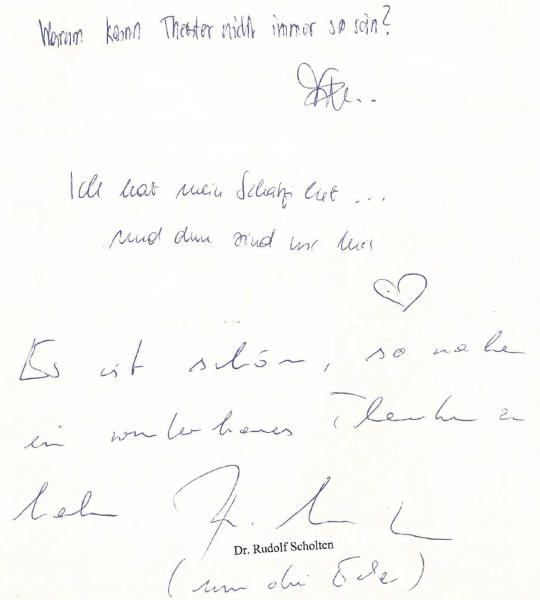 Warum kann Theater nicht immer so sein?
Ich hab mein Schatzi lieb ...
und drum sind wir hier
Es ist schön, so nahe
ein wunderbares Theater zu
haben
Dr. Rudolf Scholten
(um die Ecke)